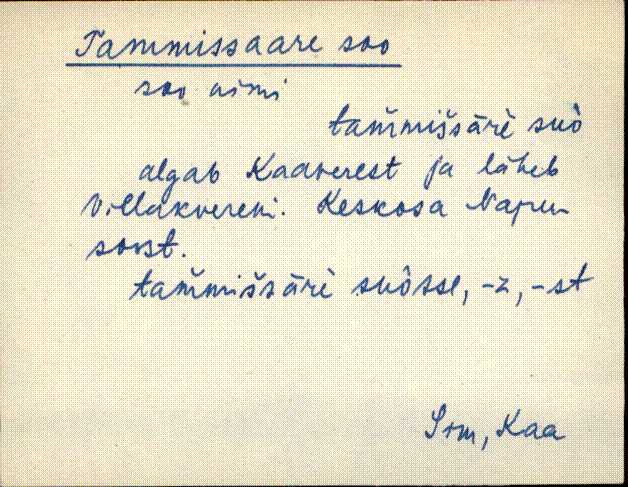 Tammissaare soo
soo nimi
tam̆mišsārè̬ suò
algab Kaaverest ja läheb
Villakvereni. Keskosa Napu
soost.
tam̆mišsārè suòsse, -z, -st
Sim, Kaa